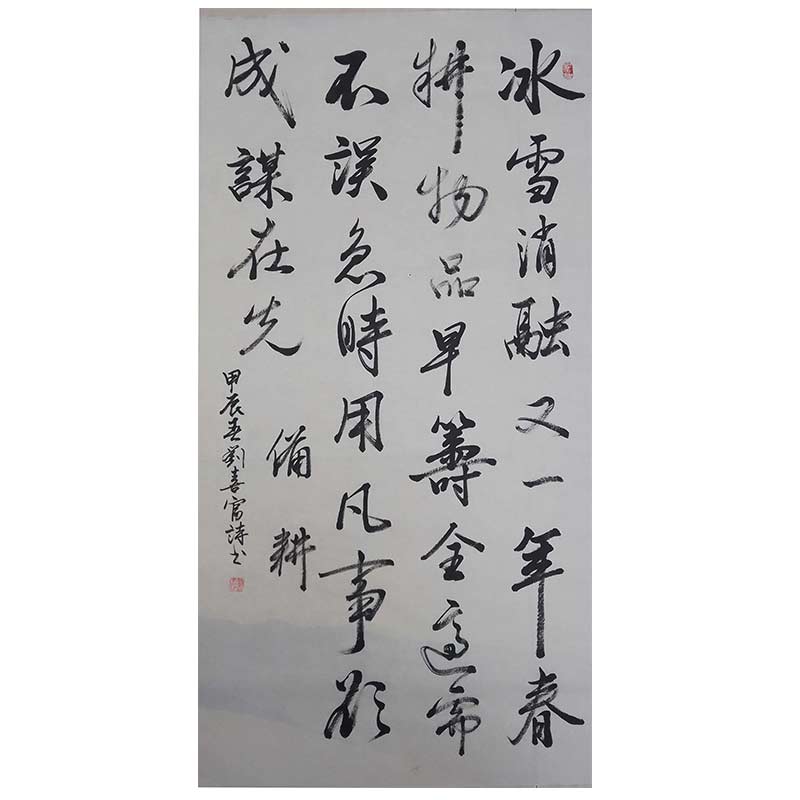 冰雪消融又一年春
耕物品早籌全適需
不誤急時用凡事欲
成謀在先
備耕
甲辰春劉喜富詩書